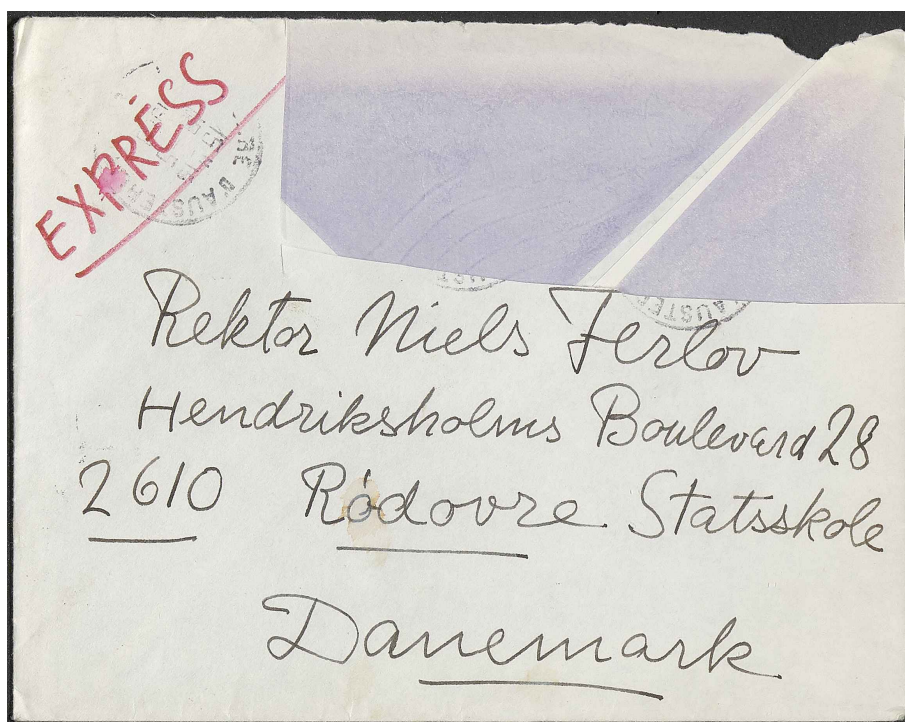 EXPRESS
RE D'AUSTER
UST
AUSTE
Rektor Niels Ferlov
Hendriksholms Boulevard 28
2610 Ródovre Statsskole
Danemark